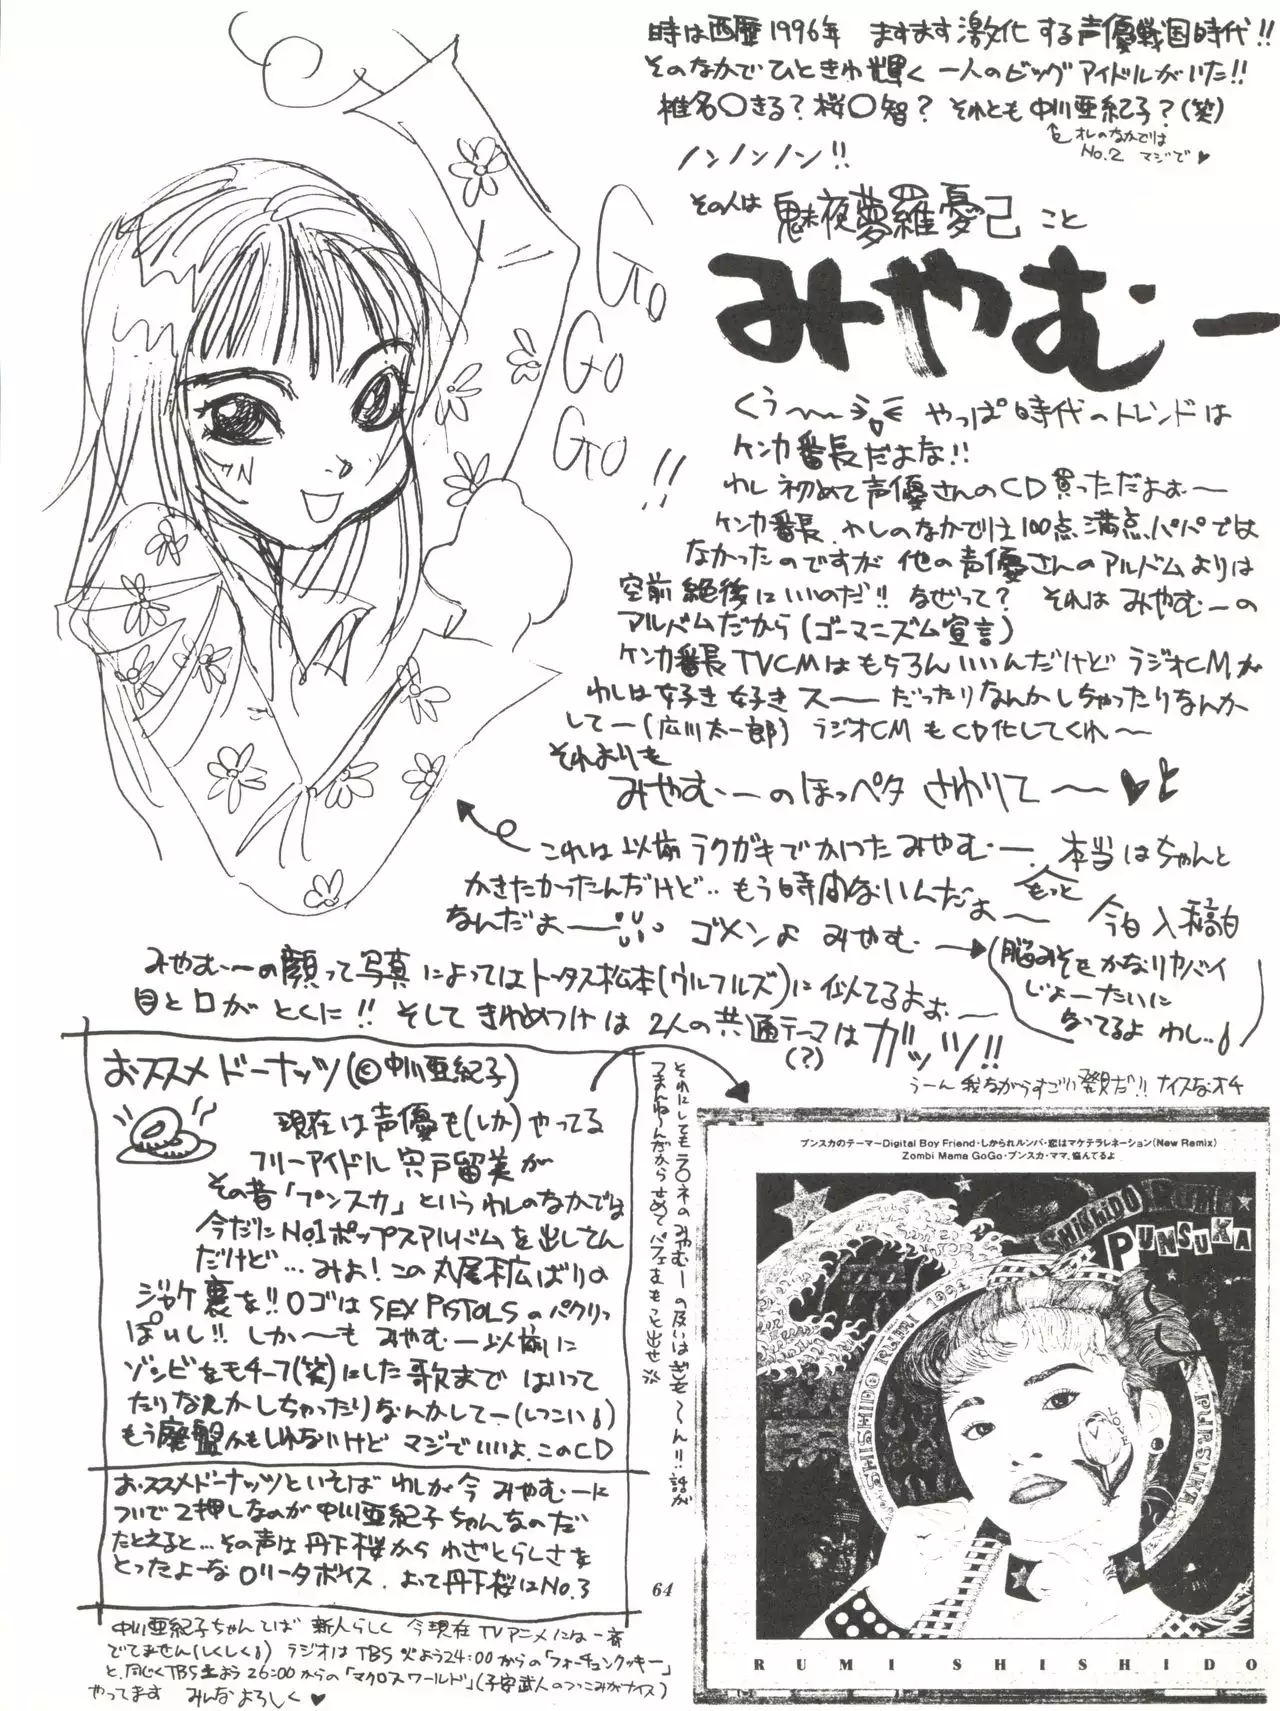 時は西暦1996年 ますます激化する声優戦国時代!!
そのなかでひときわ輝く一人のビッグアイドルがいた!!
椎名○きる?桜○智?それとも中川亜紀子?(笑)
↑オレのなかでは
No.2 マジで♥
ノンノンノン!!
その人は 魅夜夢羅憂己 こと
みやむー
Go
Go
Go!!
くう〜〜 やっぱ時代のトレンドは
ケンカ番長だよな!!
わし初めて声優さんのCD買っただよお〜
ケンカ番長、わしのなかでは100点満点パパでは
なかったのですが他の声優さんのアルバムよりは
空前絶後にいいのだ!!なぜって? それはみやむーの
アルバムだから(ゴーマニズム宣言)
ケンカ番長TVCMはもちろんいいんだけどラジオCMが
わしは好き好きス〜〜だったりなんかしちゃったりなんか
してー(広川太一郎)ラジオCMもCD化してくれ〜
それよりも
みやむーのほっペタさわりて〜♥
これは以前ラクガキでかいたみやむー、本当はちゃんと
かきたかったんだけど..もう時間ないんだよ〜
もっと
なんだよ〜 ゴメンよ みやむー→
今日入稿日
(脳みそもかなりヤバイ
じょーたいに
なってるよ わし..)
みやむーの顔って写真によってはトータス松本(ウルフルズ)に似てるよぉ〜
目と口がとくに!!そしてきわめつけは2人の共通テーマはガッツ!!
(?)
うーん我ながらすごい発見だ!!ナイスなオチ
おススメドーナッツ(©中川亜紀子)
現在は声優も(しか)やってる
フリーアイドル宍戸留美が
その昔「プンスカ」というわしのなかでは
今だにNo.1ポップスアルバムを出してんだ
だけど...みよ!この丸尾末広ばりの
ジャケ裏を!!ロゴはSEX PISTOLSのパクリっ
ぽいし!!しか〜もみやむー以前に
ゾンビをモチーフ(笑)にした歌まではいって
たりなんかしちゃったりなんかしてー(しつこい)
もう廃盤かもしれないけどマジでいいよ、このCD
おススメドーナッツといえばわしが今みやむーに
ついで2押しなのが中川亜紀子ちゃんなのだ
たとえると...その声は丹下桜からわざとらしさを
とったよーなロリータボイス、よって丹下桜はNo.3
中川亜紀子ちゃんてば新人らしく今現在TVアニメには一斉
でてません(しくしく)ラジオはTBS火よう24:00からの「フォーチュンクッキー」
と、同じくTBS土よう26:00からの「マクロスワールド」(子安武人のつっこみがナイス)
やってます みんなよろしく♥
それにしてもラ○ネのみやむーの扱いはぎも〜ん!!話が
つまんね〜んだからせめてパフェをもっと出せ
64
プンスカのテーマ〜Digital Boy Friend・しかられルンバ・恋はマケテラレネーション(New Remix)
Zombi Mama GoGo・プンスカ・ママ、悩んでるよ
SHISHIDO RUMI
PUNSUKA
SHISHIDO RUMI 1991
PUNSUKA
LOVE
RUMI SHISHIDO